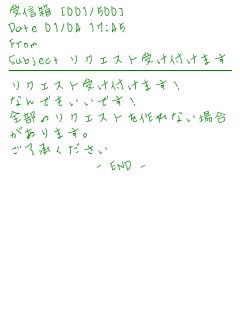 受信箱 [001/500]
Date 01/04 17:45
From
Subject リクエスト受け付けます
リクエスト受け付けます!
なんでもいいです!
全部のリクエストを作れない場合
があります。
ご了承ください
- END -